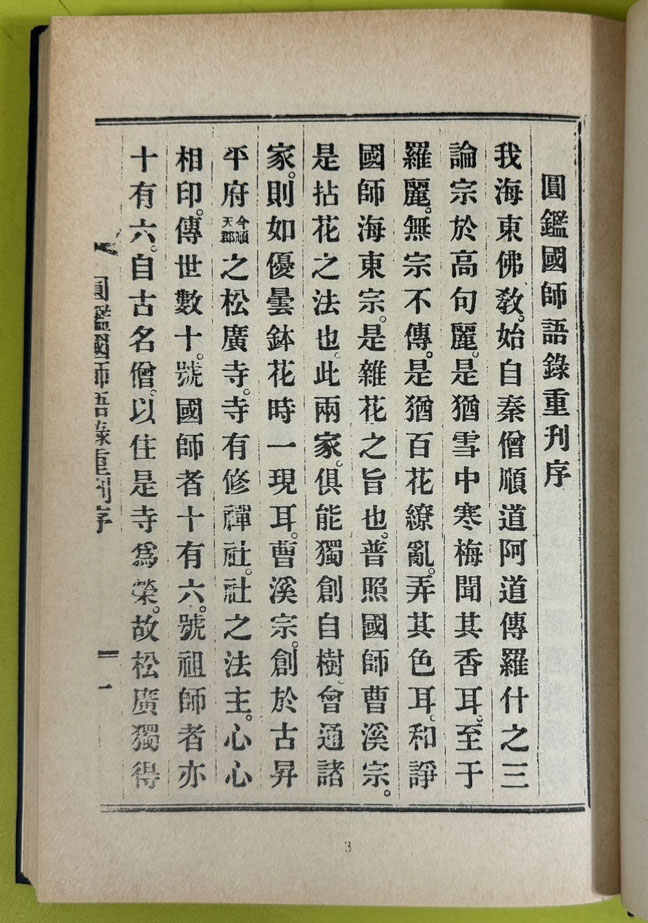 圓鑑國師語錄重刋序
我海東佛敎。始自秦僧順道阿道傳羅什之三
論宗於高句麗。是猶雪中寒梅聞其香耳。至于
羅麗。無宗不傳。是猶百花繚亂。弄其色耳。和諍
國師海東宗。是雜花之旨也。普照國師曹溪宗。
是拈花之法也。此兩家。俱能獨創自樹。會通諸
家。則如優曇鉢花時一現耳。曹溪宗。創於古昇
平府今順天郡之松廣寺。寺有修禪社。社之法主。心心
相印。傳世數十。號國師者十有六。號祖師者亦
十有六。自古名僧。以住是寺爲榮。故松廣獨得
圓鑑國師語錄重刋序
一
3